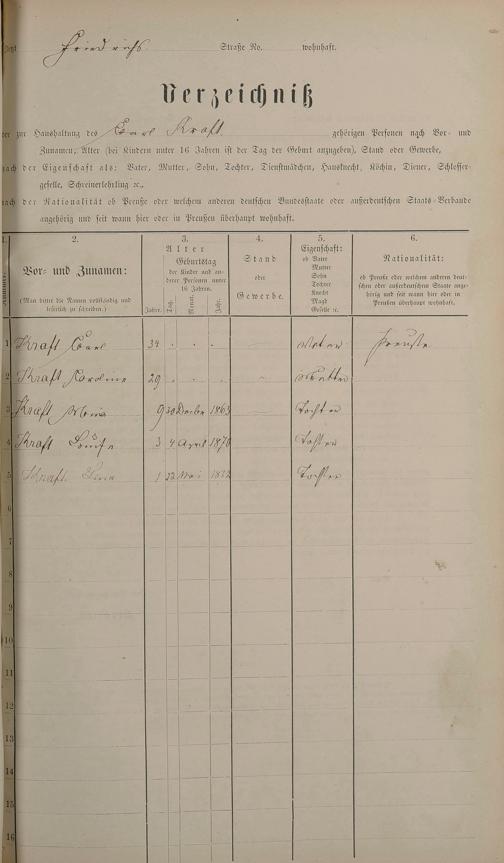 Friedrichs Straße No. wohnhaft.
Verzeichniß
der zur Haushaltung des Carl Kraft gehörigen Personen nach Vor- und
Zunamen, Alter (bei Kindern unter 16 Jahren ist der Tag der Geburt anzugeben), Stand oder Gewerbe,
nach der Eigenschaft als: Vater, Mutter, Sohn, Tochter, Dienstmädchen, Hausknecht, Köchin, Diener, Schlosser-
geselle, Schreinerlehrling ꝛc.,
nach der Nationalität ob Preuße oder welchem anderen deutschen Bundesstaate oder außerdeutschen Staats-Verbande
angehörig und seit wann hier oder in Preußen überhaupt wohnhaft.
1. 2. 3. 4. 5. 6.
Vor- und Zunamen:
(Man bittet die Namen vollständig und
leserlich zu schreiben.)
Alter
Geburtstag
der Kinder und an-
derer Personen unter
16 Jahren.
Jahre. Tag. Monat. Jahr.
Stand
oder
Gewerbe.
Eigenschaft:
ob Vater
Mutter
Sohn
Tochter
Knecht
Magd
Geselle ꝛc.
Nationalität:
ob Preuße oder welchem anderen deut-
schen oder außerdeutschen Staate ange-
hörig und seit wann hier oder in
Preußen überhaupt wohnhaft.
1 Kraft Carl 34 Vater Preuße
2 Kraft Karoline 29 Mutter
3 Kraft 9 30 1863 Tochter
4 Kraft Louise 3 4 April 1870 Tochter
5 Kraft 1 22 Mai Tochter
6
7
8
9
10
11
12
13
14
15
16